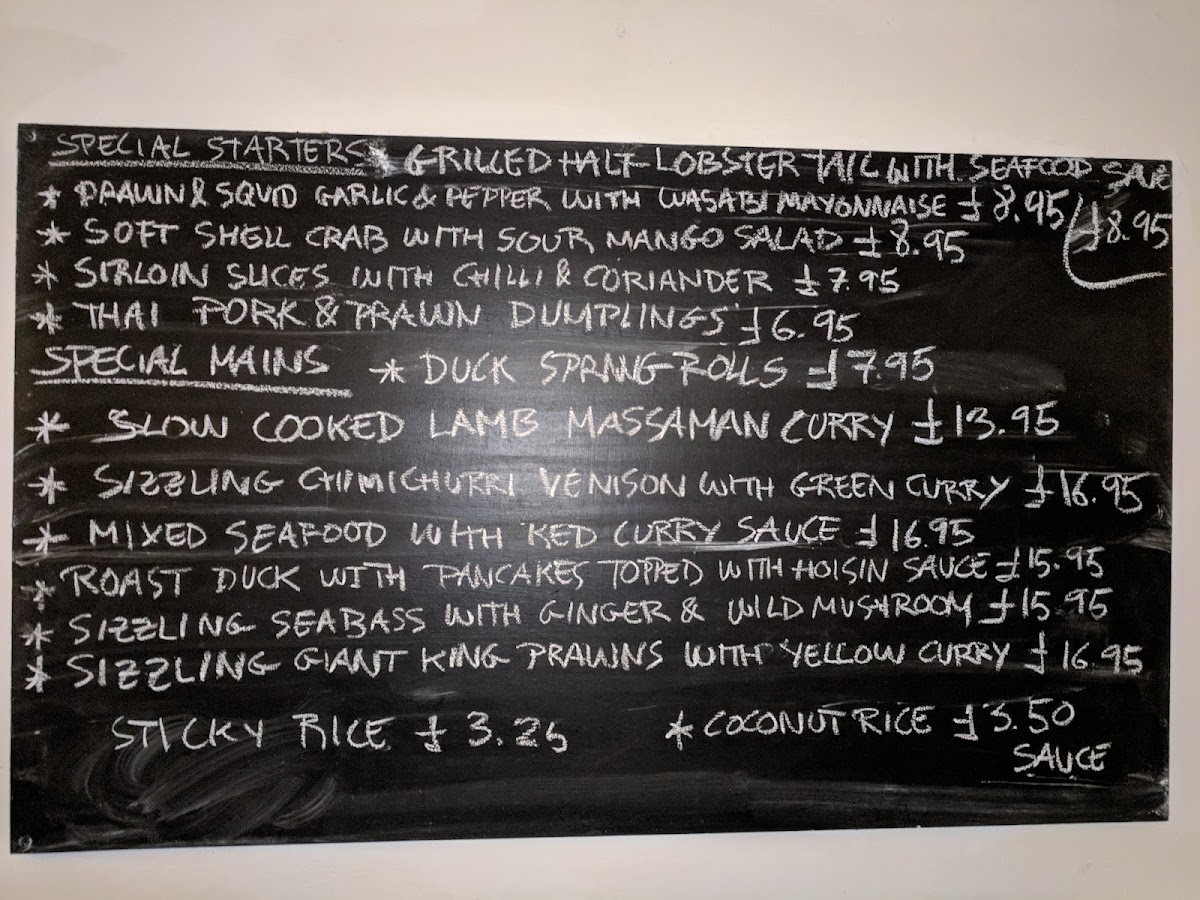 SPECIAL STARTERS * GRILLED HALF LOBSTER TAIL WITH SEAFOOD SAUCE
* PRAWN & SQUID GARLIC & PEPPER WITH WASABI MAYONNAISE £8.95 £8.95
* SOFT SHELL CRAB WITH SOUR MANGO SALAD £8.95
* SIRLOIN SLICES WITH CHILLI & CORIANDER £7.95
* THAI PORK & PRAWN DUMPLINGS £6.95
SPECIAL MAINS * DUCK SPRING ROLLS £7.95
* SLOW COOKED LAMB MASSAMAN CURRY £13.95
* SIZZLING CHIMICHURRI VENISON WITH GREEN CURRY £16.95
* MIXED SEAFOOD WITH RED CURRY SAUCE £16.95
* ROAST DUCK WITH PANCAKES TOPPED WITH HOISIN SAUCE £15.95
* SIZZLING SEABASS WITH GINGER & WILD MUSHROOM £15.95
* SIZZLING GIANT KING PRAWNS WITH YELLOW CURRY £16.95
STICKY RICE £3.25 * COCONUT RICE £3.50
SAUCE